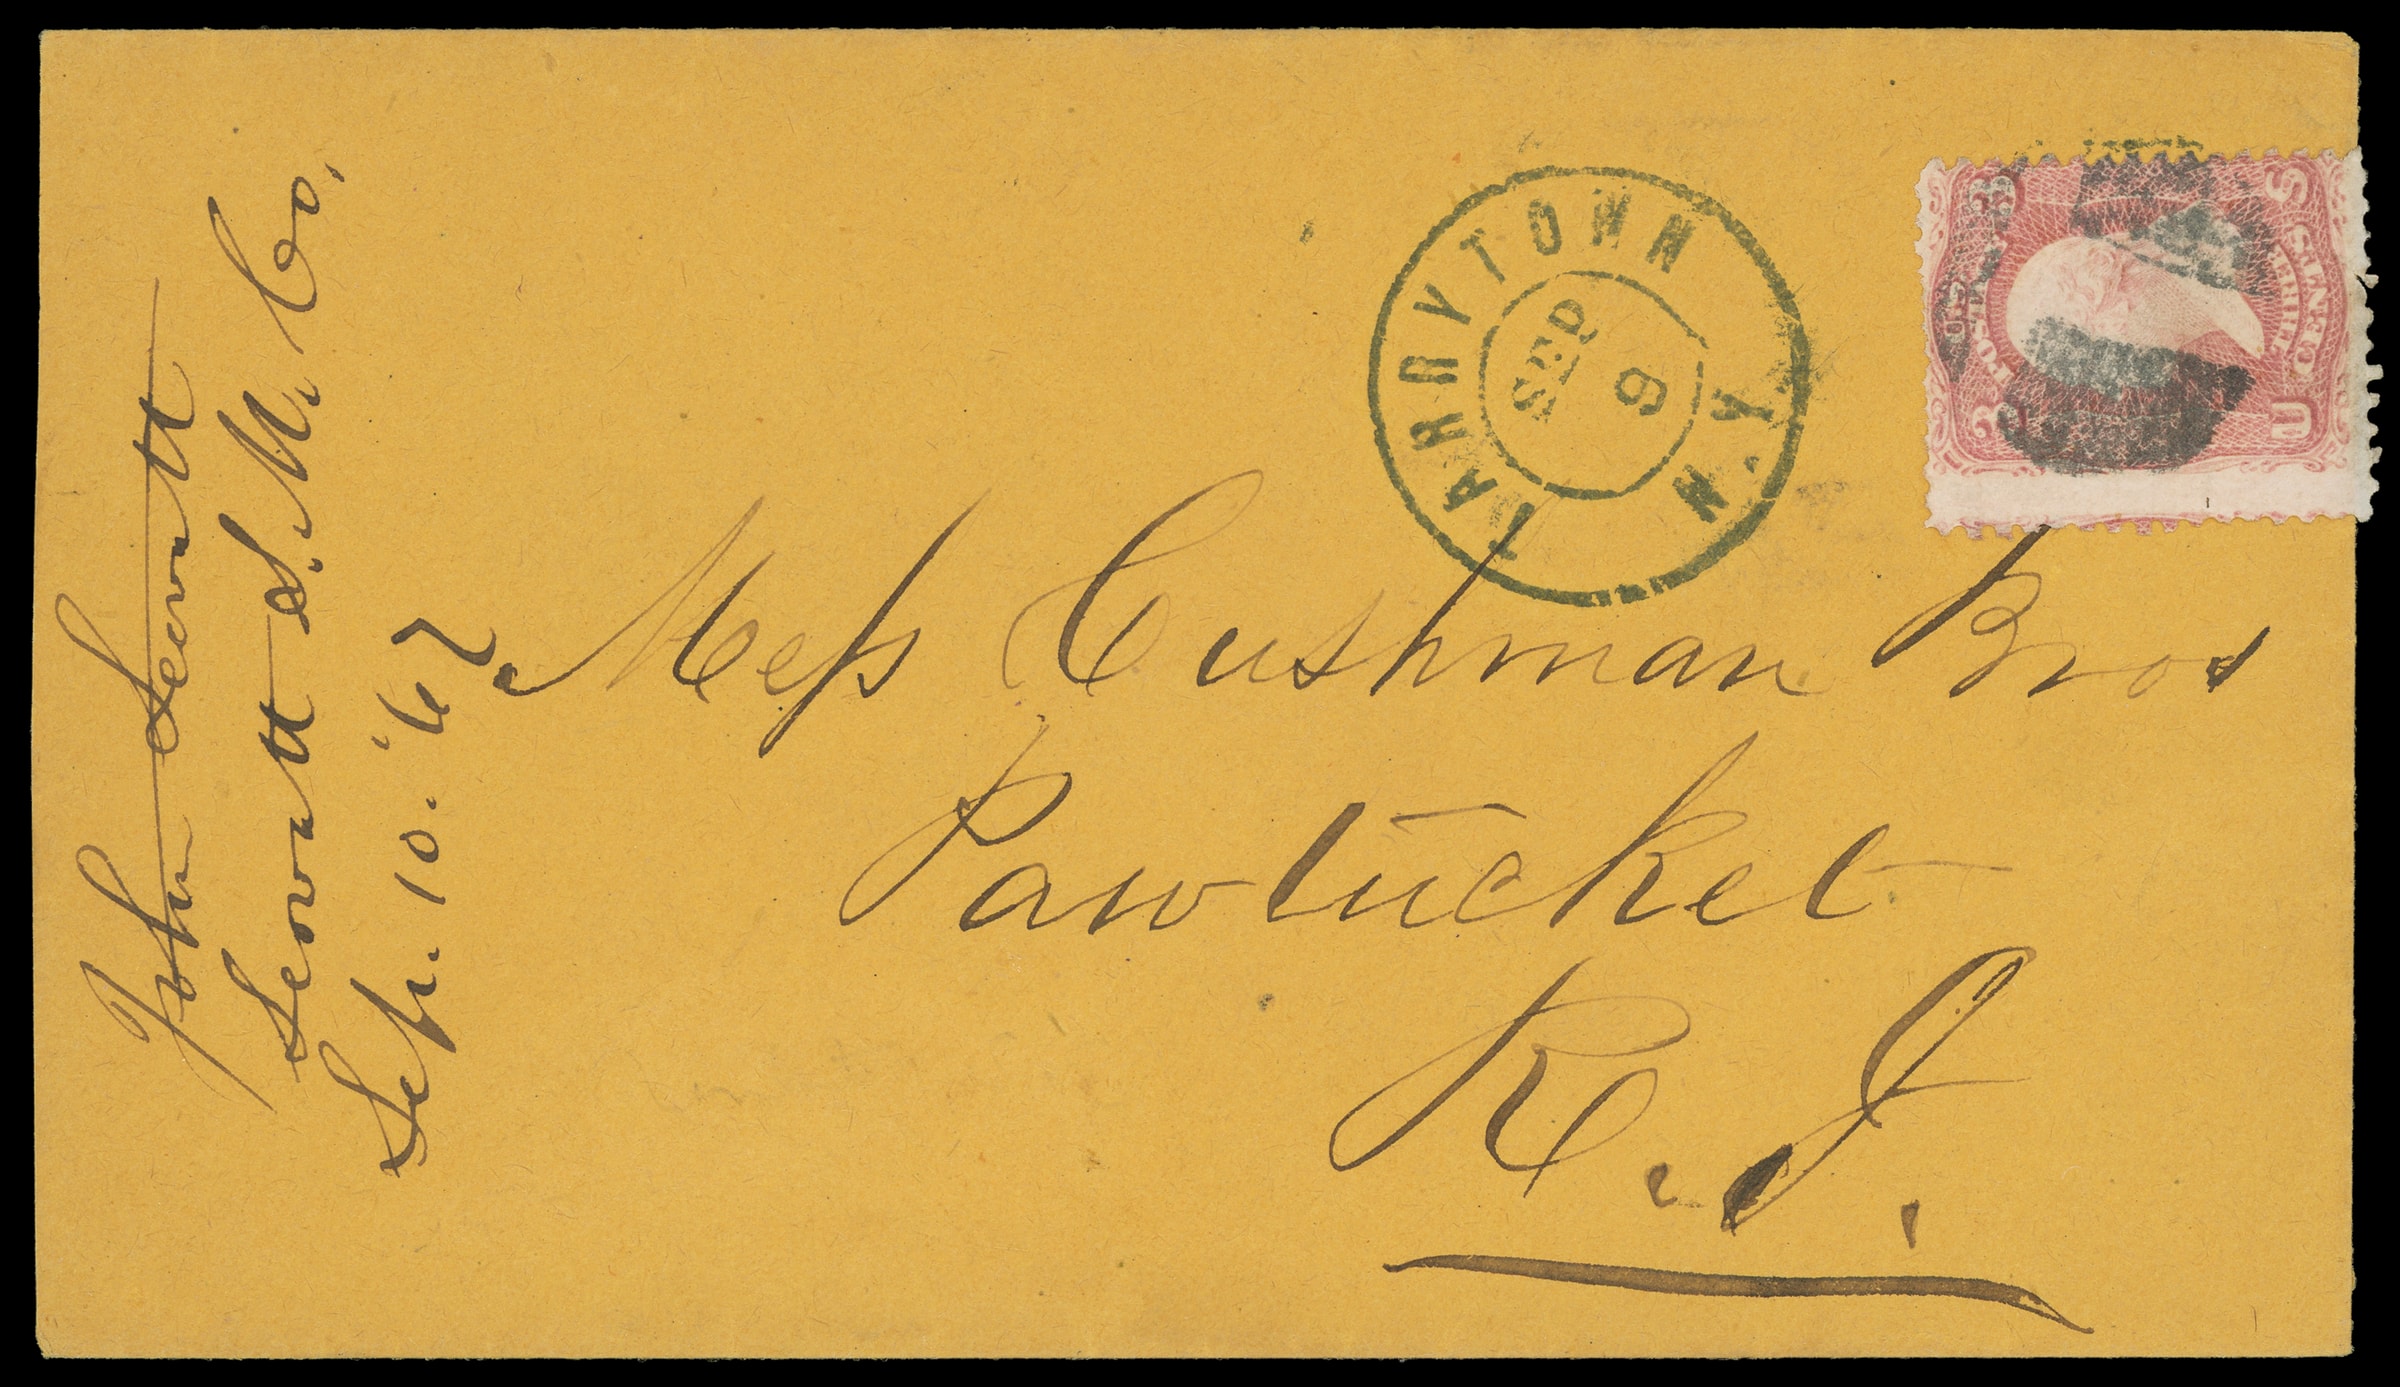 John Leavitt
Leavitt S. M. Co.
Sep. 10. '67
TARRYTOWN N.Y.
SEP
9
U S
THREE
CENTS
U.S. POSTAGE
3 3
Mess Cushman Bros
Pawtucket
R. I.